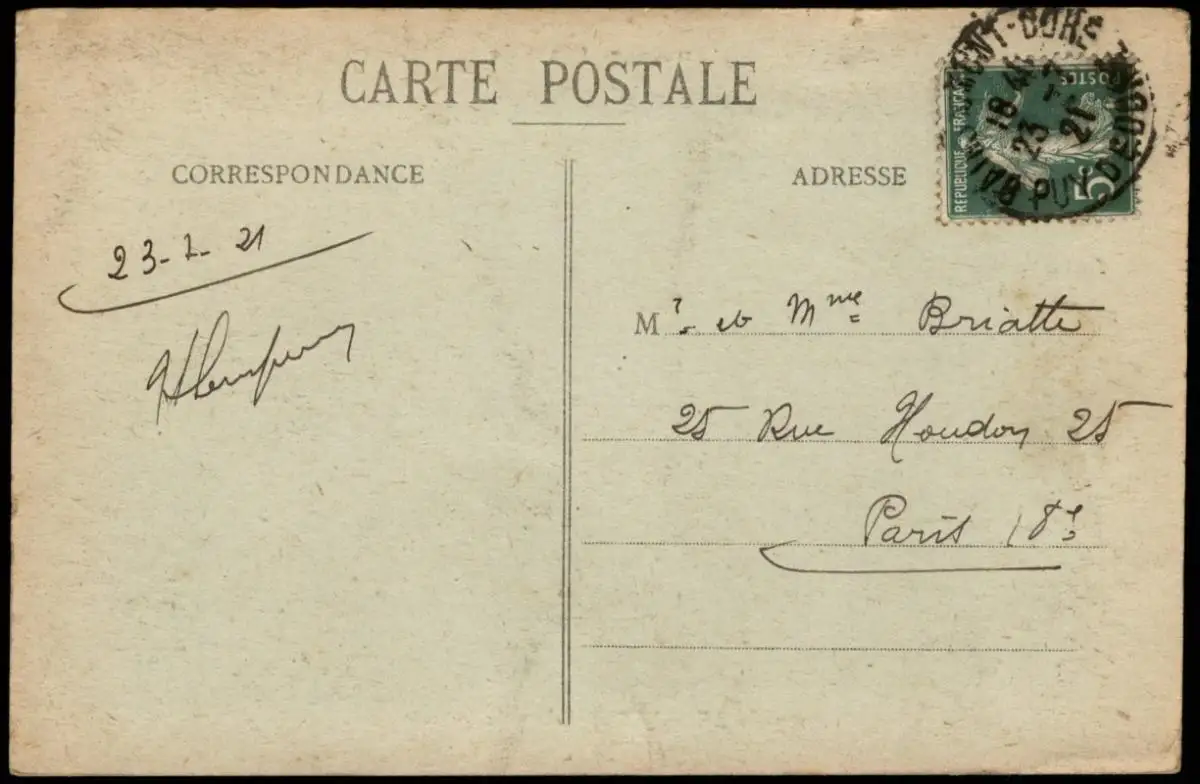 CARTE POSTALE
CORRESPONDANCE
ADRESSE
REPUBLIQUE FRANCAISE
POSTES
5
MONT-DORE
18
23
21
PUY-DE-DOME
23-7-21
Mr. et Mme Briatte
25 Rue Houdon 25
Paris 18e